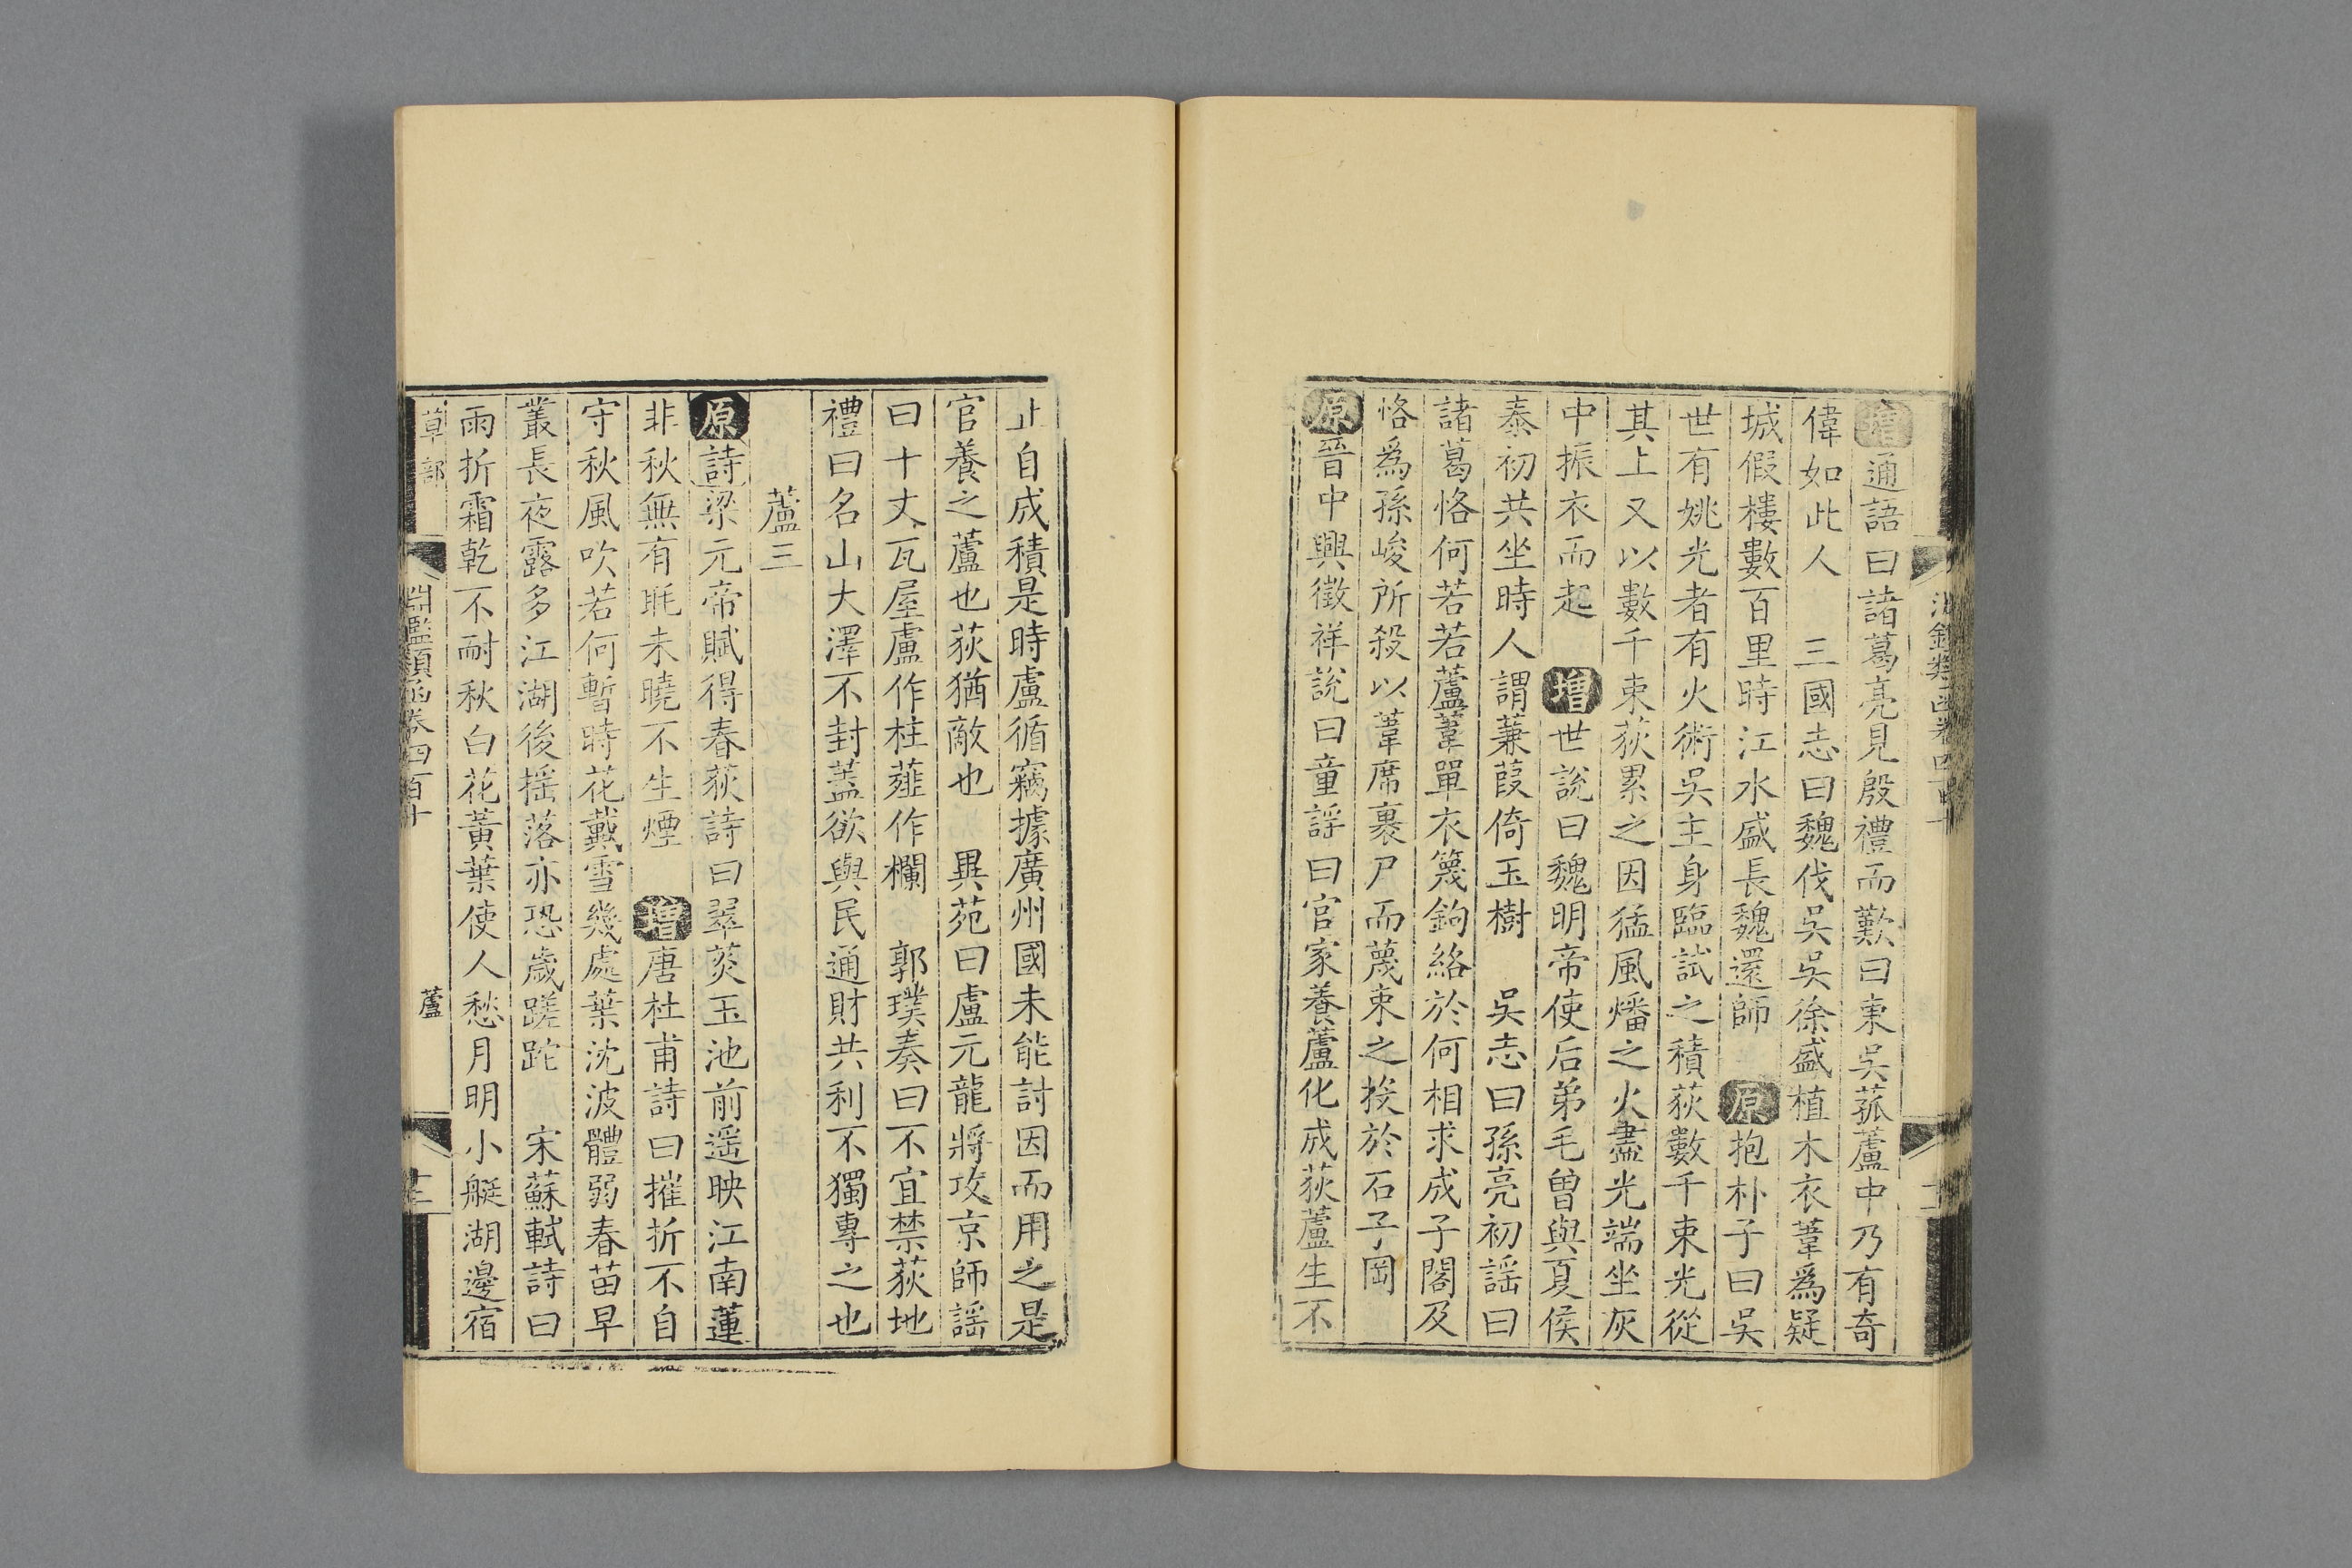 增通語曰諸葛亮見殷禮而歎曰東吳菰蘆中乃有奇
偉如此人　三國志曰魏伐吳吳徐盛植木衣葦為疑
城假樓數百里時江水盛長魏還師　原抱朴子曰吳
世有姚光者有火術吳主身臨試之積荻數千束光從
其上又以數千束荻累之因猛風燔之火盡光端坐灰
中振衣而起　增世說曰魏明帝使后弟毛曾與夏侯
泰初共坐時人謂蒹葭倚玉樹　吳志曰孫亮初謡曰
諸葛恪何若若蘆葦單衣篾鉤絡於何相求成子閣及
恪為孫峻所殺以葦席裹尸而蔑束之投於石子岡
原晉中興徵祥説曰童謡曰官家養蘆化成荻蘆生不
止自成積是時盧循竊據廣州國未能討因而用之是
官養之蘆也荻猶敵也　異苑曰盧元龍將攻京師謡
曰十丈瓦屋盧作柱薤作欄　郭璞奏曰不宜禁荻地
禮曰名山大澤不封蓋欲與民通財共利不獨專之也
蘆三
原詩梁元帝賦得春荻詩曰翠荻玉池前遥映江南蓮
非秋無有毦未曉不生煙　增唐杜甫詩曰摧折不自
守秋風吹若何暫時花戴雪幾處葉沈波體弱春苗早
叢長夜露多江湖後揺落亦恐歲蹉跎　宋蘇軾詩曰
雨折霜乾不耐秋白花黃葉使人愁月明小艇湖邊宿
草部
淵鑑類函卷四百十
蘆